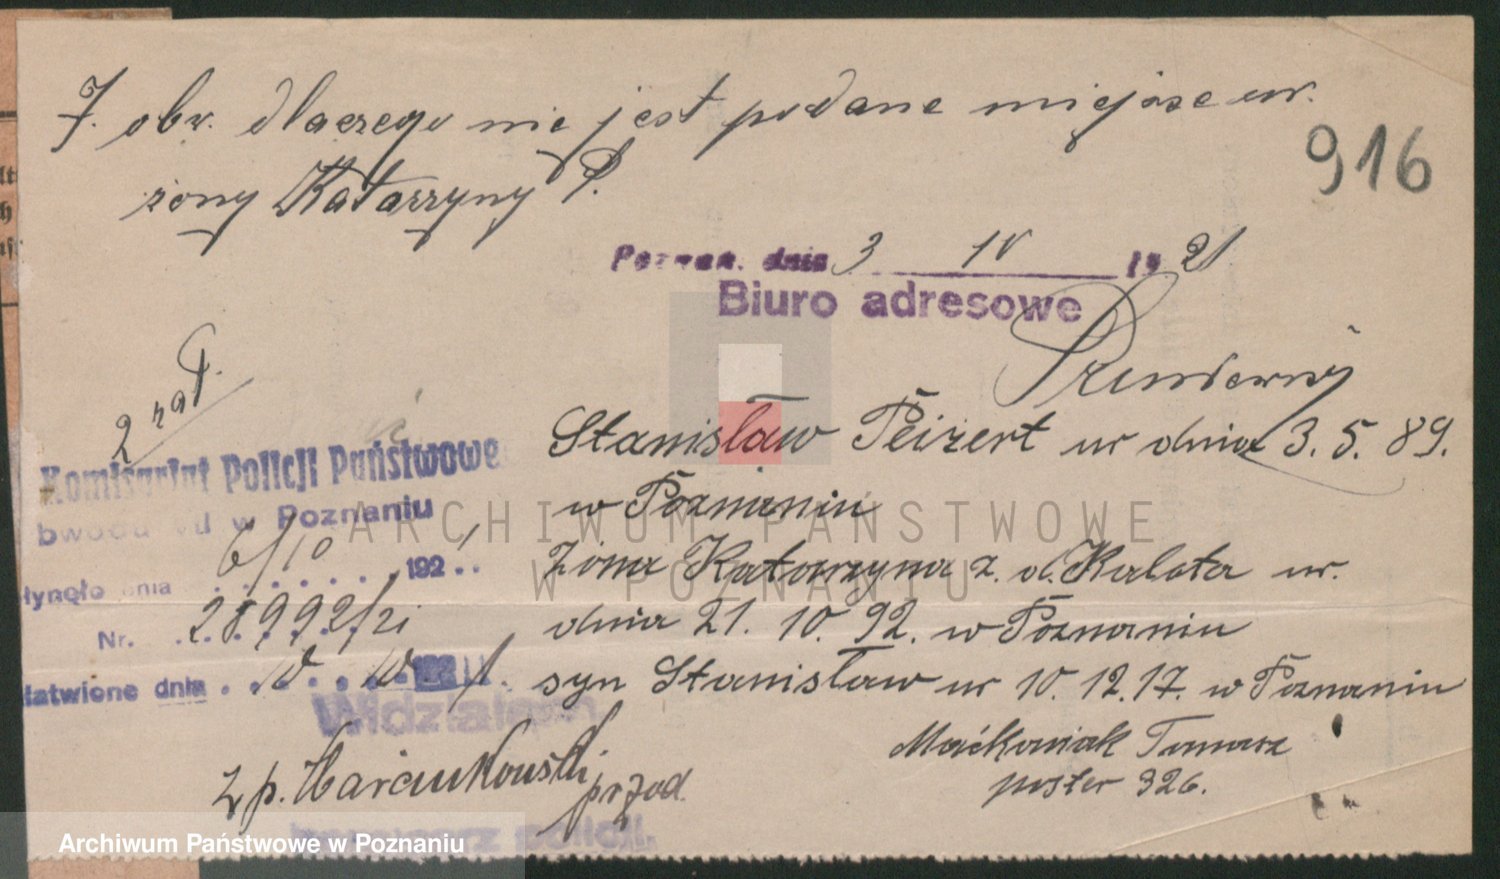 7. obw. dlaczego nie jest podane miejsce ur.
żony Katarzyny P.
916
Poznań, dnia 3 IV 1921
Biuro adresowe
2 zał.
Stanisław Peizert ur dnia 3. 5. 89.
w Poznaniu
żona Katarzyna z. d. Kalota ur.
dnia 21. 10. 92. w Poznaniu
syn Stanisław ur 10. 12. 17. w Poznaniu
Maćkowiak Tomasz
poster 326.
Komisarjat Policji Państwowe
bwodu VII w Poznaniu
łynęło dnia 6/10 1921
Nr. 28992/21
łatwione dnia 10. 10. 1921.
Widziałem
z p. Marcinkowski
przod.
policji.
ARCHIWUM PAŃSTWOWE
W POZNANIU
Archiwum Państwowe w Poznaniu